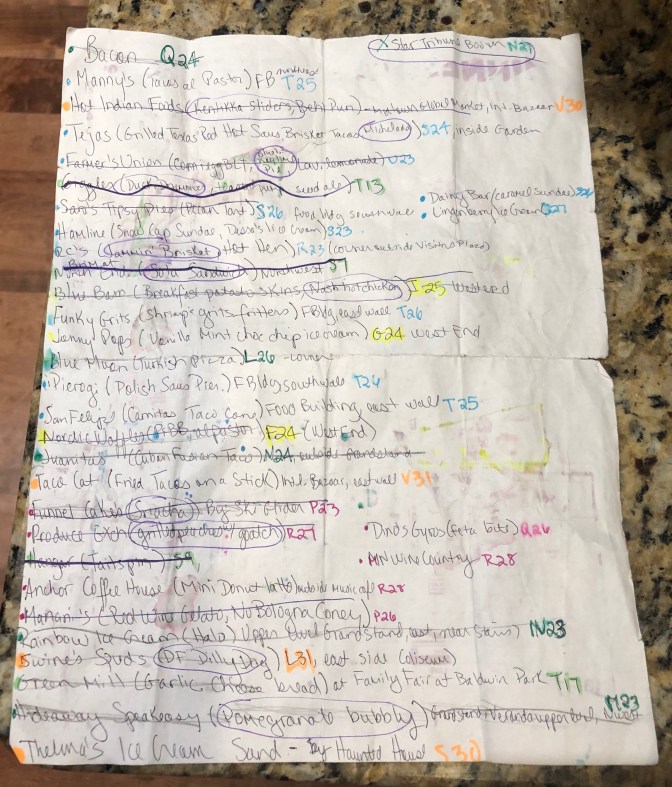 Bacon Q24
X Star Tribune Boom N27
Manny's (Taus al Pastor) FB T25
Hot Indian Foods (Kentikka Sliders, Behl Puri) - Midtown Global Market, Int. Bazaar V30
Tejas (Grilled Texas Red Hot Saus, Brisket Tacos, Michelada) S24 inside Garden
Farmer's Union (BLT, Pie, Lav. lemonade) U23
Giggles T13
Dairy Bar (caramel sundae)
Sara's Tipsy Pies (Pecan Tart) S26 food bldg
Lingonberry Ice Cream
Hamline (Snow Cap Sundae, Ice Cream) S23
RC's (Jammin' Brisket, Hot Hen) R23 (corner outside Visitns Place)
Northwest
Blu Barn (Breakfast potato skins, Nash hot chicken) I 25 West end
Funky Grits (Shrimp & grits fritters) FBldg, east wall T26
Jonny Pops (Vanilla Mint choc chip ice cream) G24 West End
Blue Moon (Turkish pizza) L26 - corner
Pierogi (Polish Saus Pier.) FBldg south wall T26
San Felipe (Carnitas Taco Cone) Food Building, east wall T25
Nordic Waffles F24 (West End)
Juanitas (Cuban Fusion Taco) N24, outside grandstand
Taco Cat (Fried Tacos on a Stick) Int. Bazaar, east wall V31
Funnel Cakes By Ski Glider P23
Produce Exch R27
Dino's Gyros (feta bites) Q26
MN Wine Country R28
Hangar (Tailspin)
Anchor Coffee House (Mini Donut latte) outside music caf R28
(Red Wine Gelato, No Bologna Coney) P26
Rainbow Ice Cream (Halo) Upper Level Grandstand, east, near stairs) N23
Swine & Spuds (DF Dilly Dog) L31, east side Coliseum)
Green Mill (Garlic Cheese bread) at Family Fair at Baldwin Park T17
Hideaway Speakeasy (Pomegranate bubbly) Grandstand Veranda upper level, Nwest M23
Thelma's Ice Cream Sand - by Haunted House S30